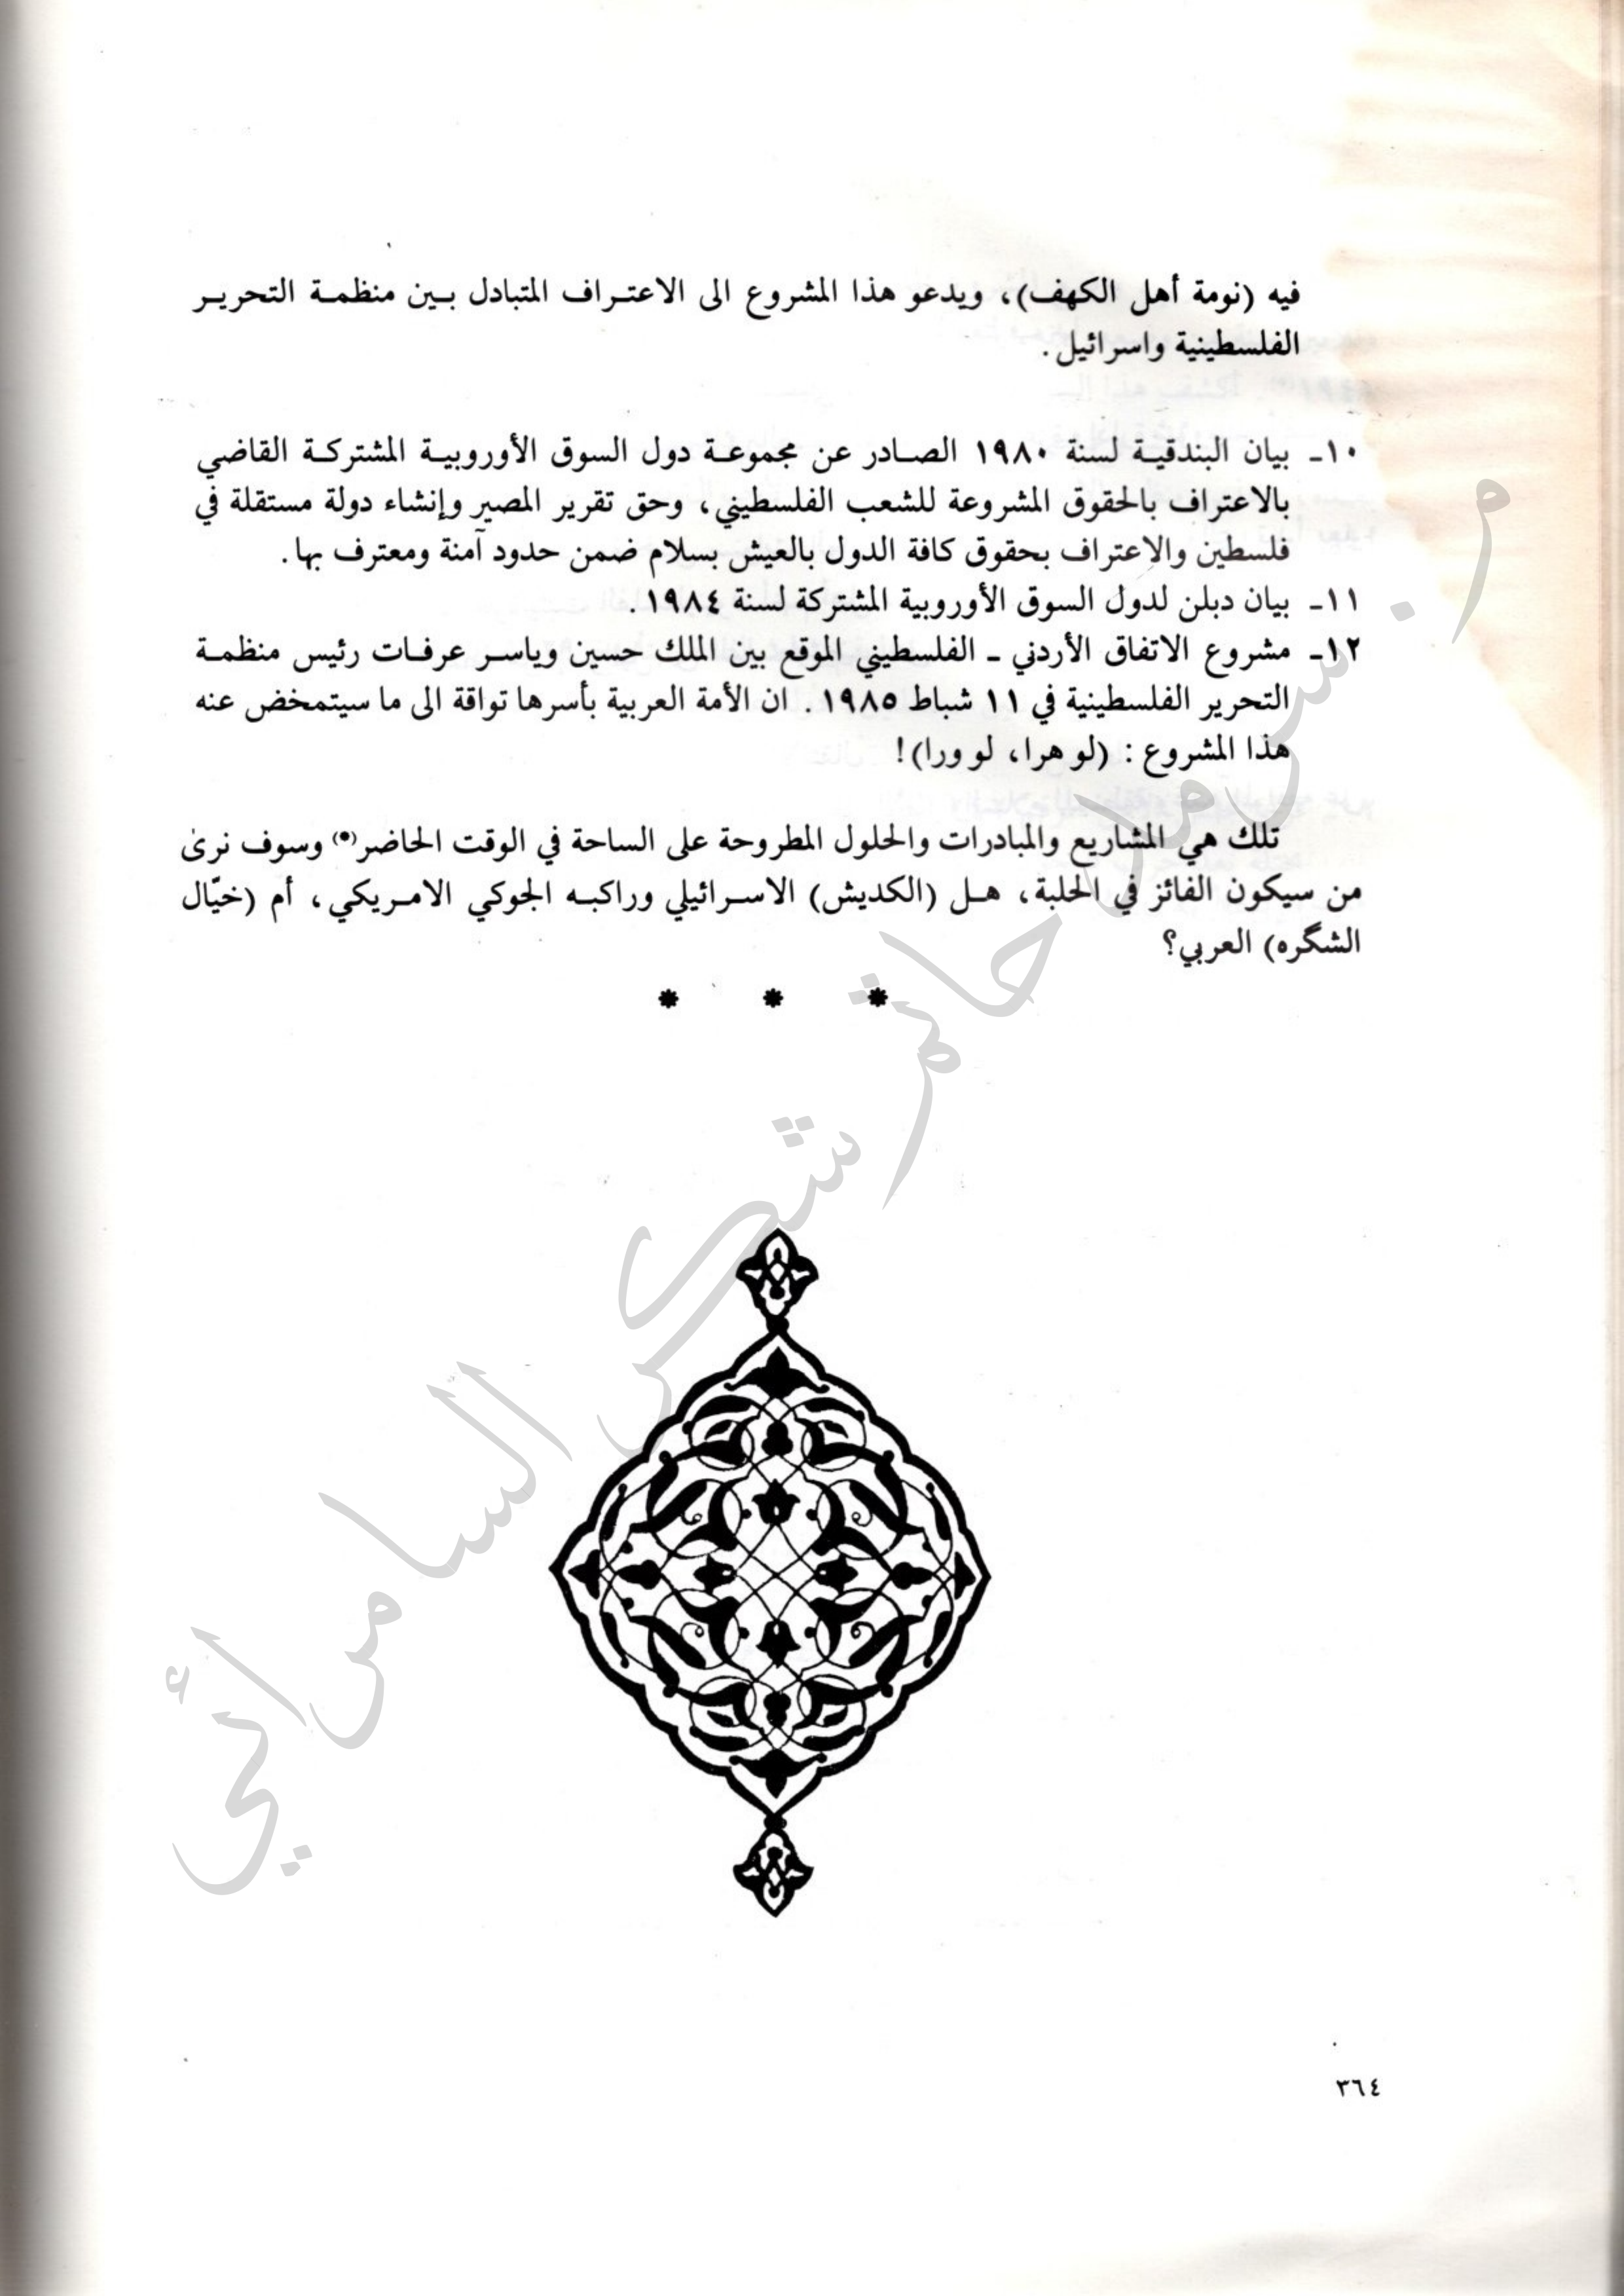 فيه (نومة أهل الكهف)، ويدعو هذا المشروع الى الاعتراف المتبادل بين منظمة التحرير
الفلسطينية واسرائيل.
١٠ـ بيان البندقية لسنة ١٩٨٠ الصادر عن مجموعة دول السوق الأوروبية المشتركة القاضي
بالاعتراف بالحقوق المشروعة للشعب الفلسطيني، وحق تقرير المصير وإنشاء دولة مستقلة في
فلسطين والاعتراف بحقوق كافة الدول بالعيش بسلام ضمن حدود آمنة ومعترف بها.
١١ـ بيان دبلن لدول السوق الأوروبية المشتركة لسنة ١٩٨٤.
١٢ـ مشروع الاتفاق الأردني ـ الفلسطيني الموقع بين الملك حسين وياسر عرفات رئيس منظمة
التحرير الفلسطينية في ١١ شباط ١٩٨٥. ان الأمة العربية بأسرها تواقة الى ما سيتمخض عنه
هذا المشروع : (لو هرا، لو ورا)!
تلك هي المشاريع والمبادرات والحلول المطروحة على الساحة في الوقت الحاضر(*) وسوف نرىٰ
من سيكون الفائز في الحلبة، هل (الكديش) الاسرائيلي وراكبه الجوكي الامريكي، أم (خيّال
الشگره) العربي؟
* * *
من سرمد حاتم شكر السامرائي
٣٦٤